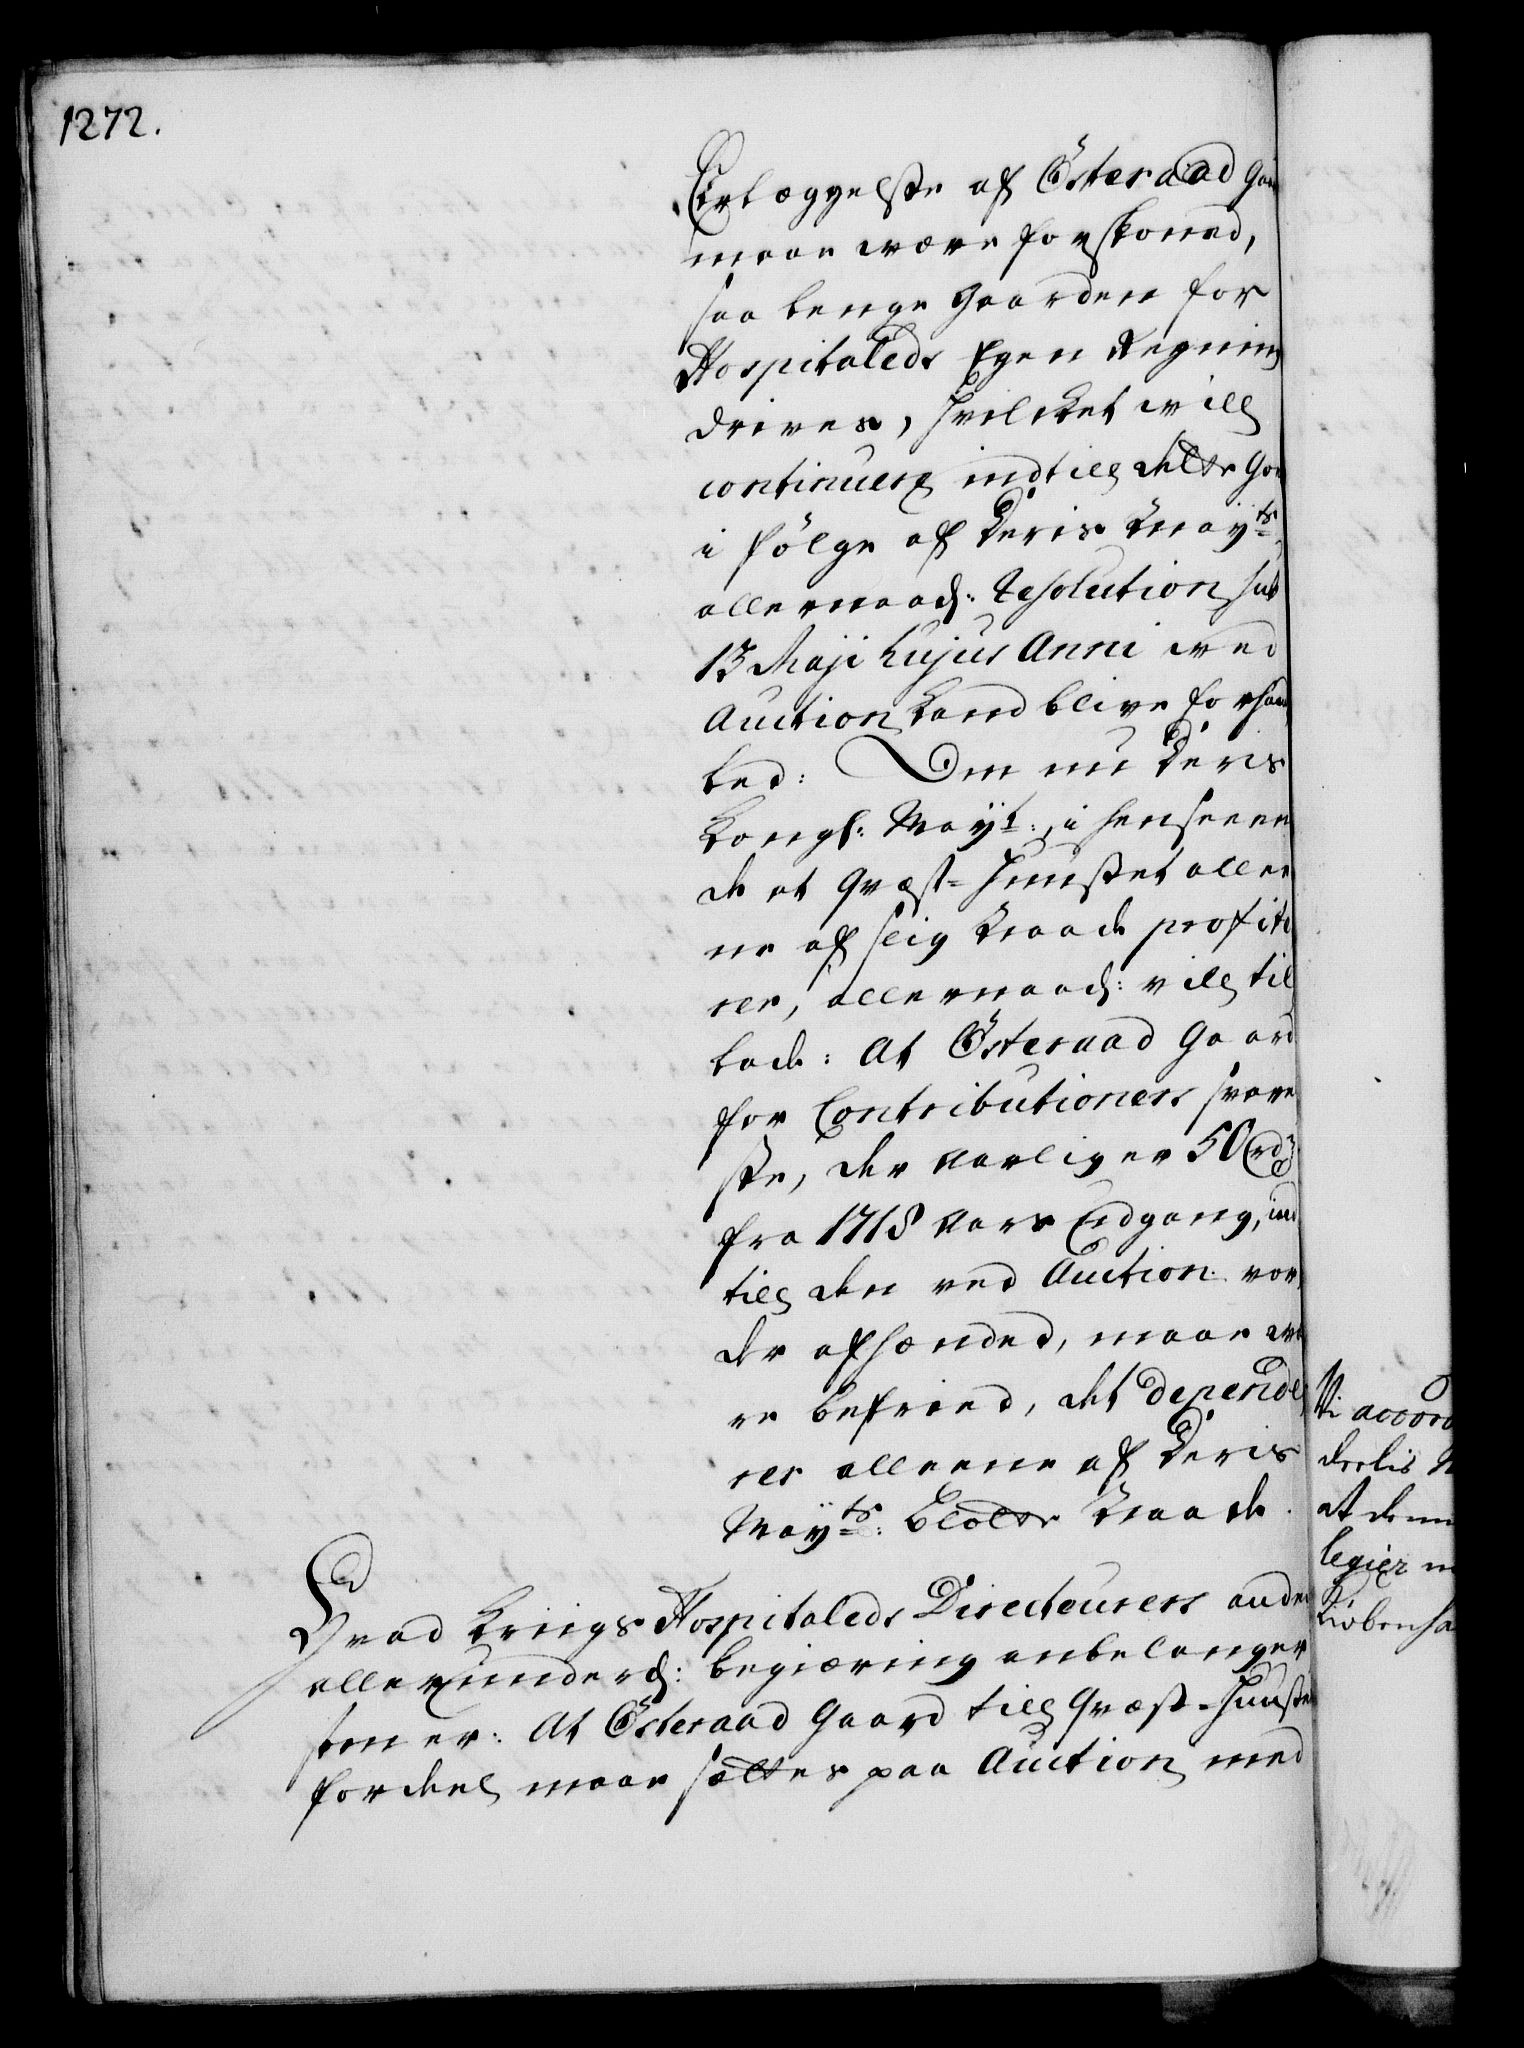 1272.
Erlæggelse af Österaad
maae være forskoned,
saa lenge Gaarden for
Hospitaleds Egen Regning
drives, hvilcket will
continuere indtill dette
i fölge af Deris May^ts:
allernaad: Resolution sub
13 Maji hujus Anni ved
Auction kand blive forhand
led: Om nu Deris
Kongl: May^t:, i henseen
de at Qvæst-Huuset allee
ne af slig Naade profite
rer, allernaad: vill til
lade: At Österaad Gaard
for Contributionen svare
ste, der Aarlig er 50 rd
fra 1718 Aars Udgang, ind
till den ved Auction vor
der afhændet, maae væ
re befried, det depende
rer alleene af Deris
May^ts: blotte Naade.
Hvad Kriigs Hospitaleds Directeurers anden
allerunderd: begiæring anbelanger
som er: At Österaad Gaard till Qvæst-Huusets
fordeel maae sættes paa Auction med
Vi accord
deelis
at denne
legier
Kiöbenha